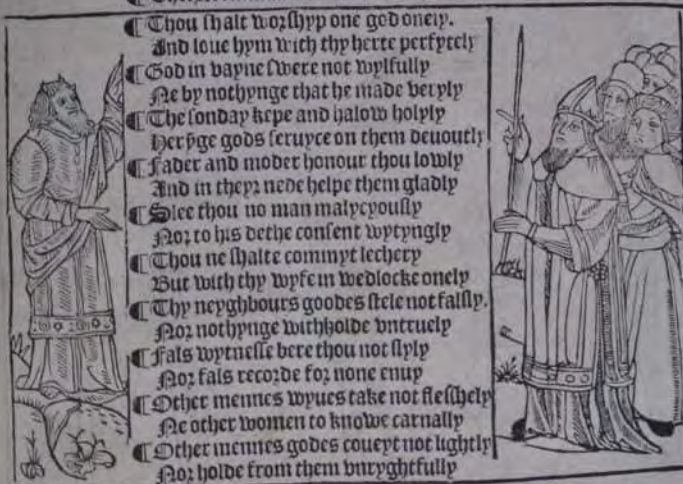 ¶ Thou shalt worshyp one god onely.
And loue hym with thy herte perfytely
¶ God in vayne swere not wylfully
Ne by nothynge that he made veryly
¶ The sonday kepe and halow holyly
Herȳge gods seruyce on them deuoutly
¶ Fader and moder honour thou lowly
And in theyr nede helpe them gladly
¶ Slee thou no man malycyously
Nor to his dethe consent wytyngly
¶ Thou ne shalte commyt lechery
But with thy wyfe in wedlocke onely
¶ Thy neyghbours goodes stele not falsly.
Nor nothynge withholde vntruely
¶ Fals wytnesse bere thou not slyly
Nor fals recorde for none enuy
¶ Other mennes wyues take not flesshely
Ne other women to knowe carnally
¶ Other mennes godes coueyt not lightly
Nor holde from them vnryghtfully